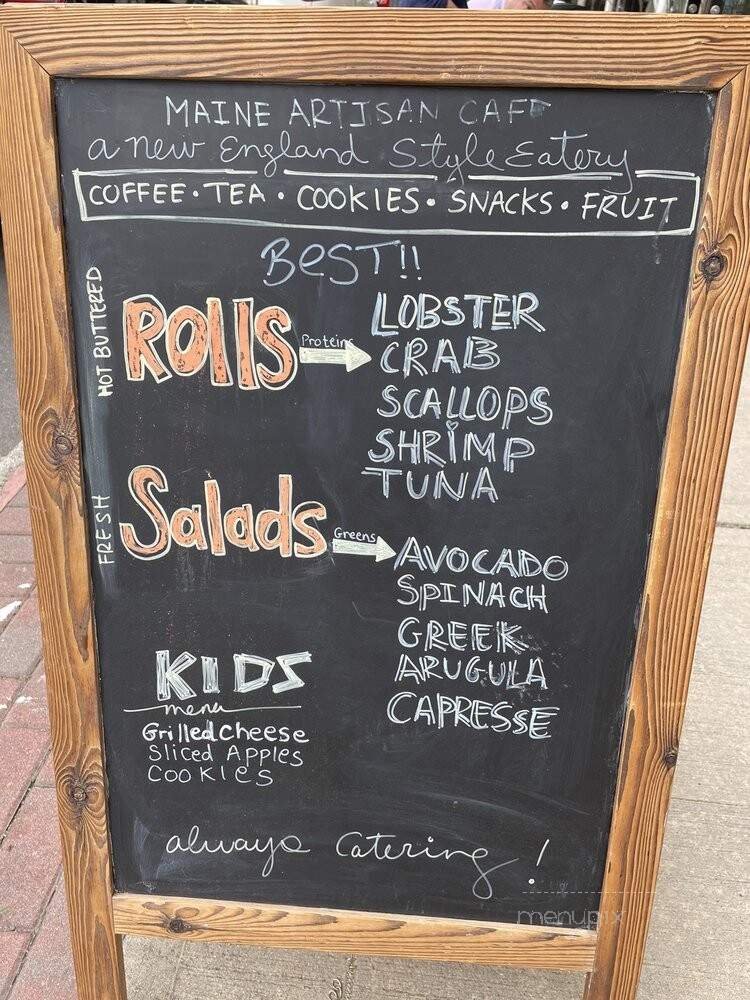 MAINE ARTISAN CAFE
a new England Style Eatery
COFFEE · TEA · COOKIES · SNACKS · FRUIT
BEST!!
HOT BUTTERED
ROllS
Proteins
LOBSTER
CRAB
SCALLOPS
SHRiMP
TUNA
FRESH
Salads
Greens
AVOCADO
SPINACH
GREEK
ARUGULA
CAPRESSE
KIDS
menu
Grilled Cheese
Sliced Apples
COOKIES
always Catering!
menupix